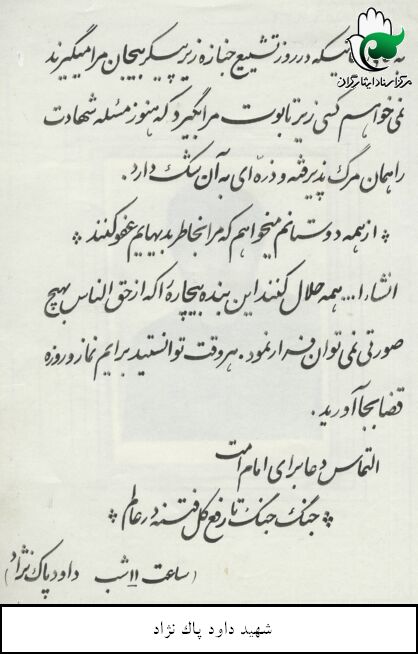 مرکز اسناد ایثارگران
که در روز تشییع جنازه زیر پیکر بیجان مرا میگیرند
نمی‌خواهم کسی زیر تابوت مرا بگیرد که هنوز مسئله شهادت
را همان مرگ پذیرفته و ذره‌ای به آن شک دارد.
* از همه دوستانم میخواهم که مرا بخاطر بدیهایم عفو کنند *
انشاءا... همه حلال کنند این بنده بیچاره را که از حق الناس بهیچ
صورتی نمی توان فرار نمود. هر وقت توانستید برایم نماز و روزه
قضا بجا آورید.
التماس دعا برای امام امت
* جنگ جنگ تا رفع کل فتنه در عالم *
(ساعت ۱۱ شب داود پاک نژاد)
شهید داود پاک نژاد